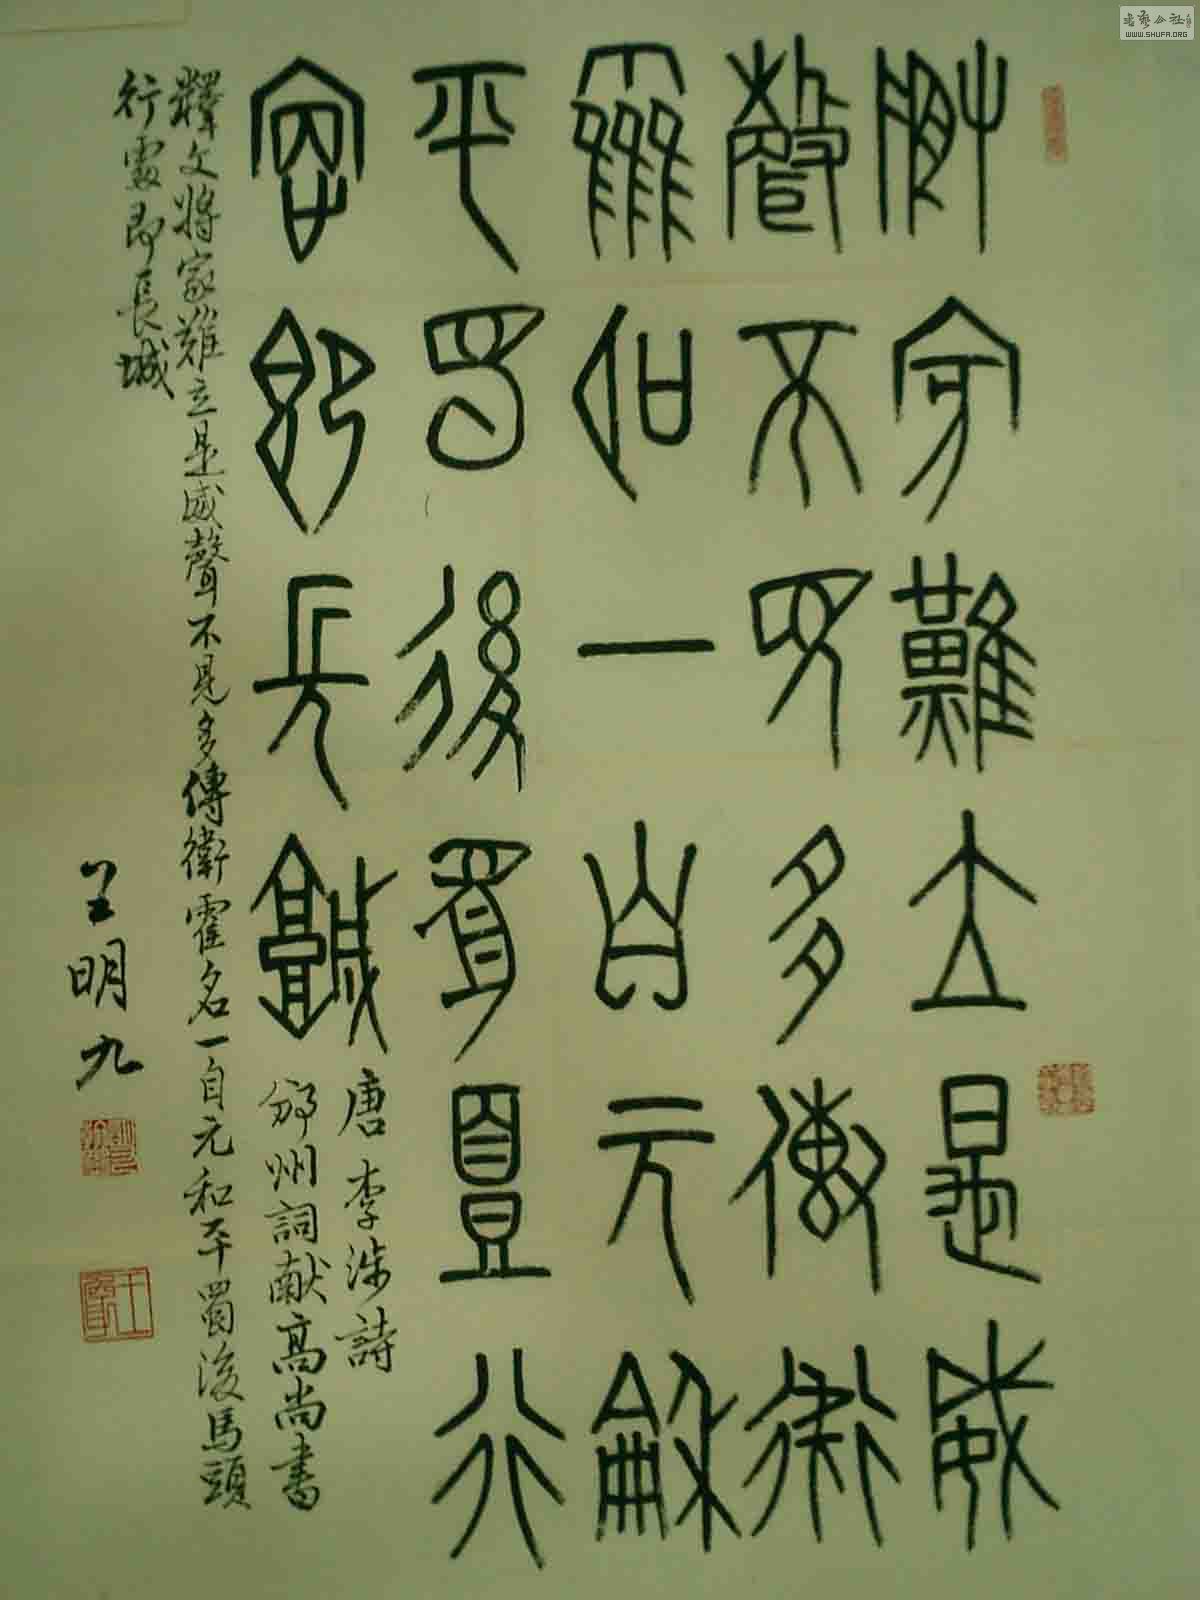 將家難立是威
聲不見多傳衛
霍名一自元和
平蜀後馬頭行
處即長城
唐李涉詩
邠州詞献高尚書
釋文將家難立是威聲不見多傳衛霍名一自元和平蜀後馬頭
行處即長城
王明九
書藝公社
WWW.SHUFA.ORG